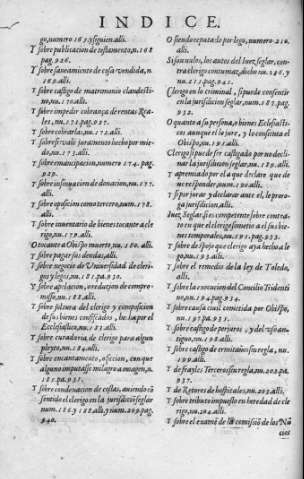 INDICE.
go, numero 165. y siguien. alli.
Y sobre publicacion de testamento, n. 168
pag. 926.
Y sobre saneamiento de cosa vendida, n
169. alli.
Y sobre castigo de matrimonio clandesti-
no, nu. 170. alli.
Y sobre impedir cobrança de rentas Rea-
les, nu. 171. pag. 927.
Y sobre cobrarlas, nu. 172. alli.
Y sobre juramento hecho por mie-
do, nu. 173. alli.
Y sobre emancipacion, numero 174. pag.
929.
Y sobre insinuacion de donacion, nu. 177.
alli.
Y sobre oposicion como tercero, num. 178.
alli.
Y sobre inventario de bienes tocante a cle-
rigo, nu. 179. alli.
O tocante a Obispo muerto, nu. 180. alli.
Y sobre pagar sus deudas, alli.
Y sobre negocio de Universidad de cleri-
gos y legos, nu. 181. pa. 930.
Y sobre apelacion, o reducion de compro-
misso, nu. 182. alli.
Y sobre soltura del clerigo y composicion
de sus bienes confiscados, hecha por el
Ecclesiastico, nu. 183. alli.
Y sobre curaduria, de clerigo para algun
pleyto, nu. 184. alli.
Y sobre encantamento, oficion, con que
alguno imputasse milagro a imagen, n.
185. pa. 931.
Y sobre condenacion de costas, aviendo co
sentido el clerigo en la jurisdicion seglar
num. 186. y 188. alli. y num. 209. pag.
940.
O siendo reputado por lego, numero 210.
alli.
Si son nulos, los autos del Iuez seglar, con-
tra clerigo contumaz, dicho nu. 146. y
nu. 211. pag. 941.
Clerigo en lo criminal, si puede consentir
en la jurisdicion seglar, num. 187. pag.
932.
O quanto a su persona, o bienes Ecclesiasti-
cos aunque el lo jure, y lo consienta el
Obispo, nu. 191. alli.
Clerigo si puede ser castigado por no decli-
nar la jurisdicion seglar, nu. 189. alli.
Y apremiado por el a que declare que de-
ve responder, num. 190. alli.
Y si por jurar y declarar ante el, le proro-
ga jurisdicion, alli.
Iuez Seglar, si es competente sobre contra-
to en que el clerigo someta a el sus bie-
nes temporales, nu. 192. pag. 933.
Y sobre despojo que clerigo aya hecho a le-
go, nu. 193. alli.
Y sobre el remedio de la ley de Toledo,
alli.
Y sobre la execucion del Concilio Tridenti-
no, nu. 194. pag. 934.
Y sobre causa civil cometida por Obispo,
nu. 197. pag. 935.
Y sobre castigo de perjurio, y delexo an-
tiguo, nu. 198. alli.
Y sobre castigo de ermitaños sin regla, nu.
199. alli.
Y de frayles Terceros sin regla, nu. 202.
alli.
Y de Retores de hospitales, nu. 203. alli.
Y sobre tributo impuesto en heredad de cle-
rigo, nu. 204. alli.
Y sobre el examen de la comission de los Nū
cios